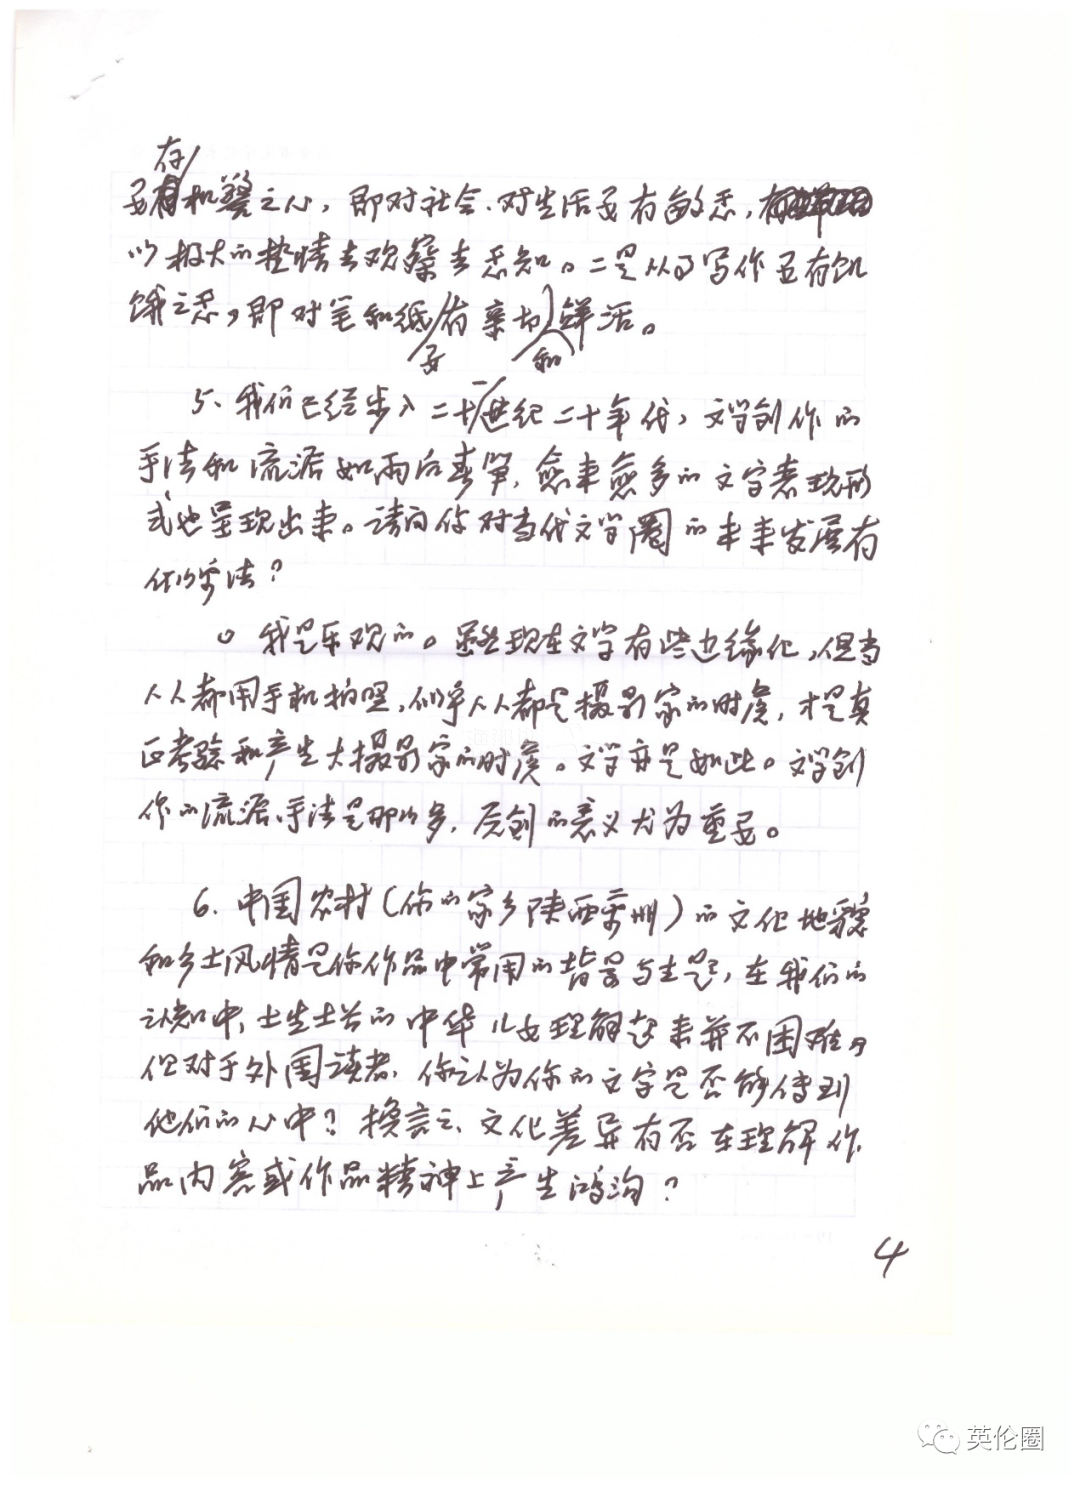 要存机警之心，即对社会、对生活要有敏感，
以极大的热情去观察去感知。二是从事写作要有饥
饿之感，即对笔和纸要有亲切和鲜活。
5、我们已经步入二十一世纪二十年代，文学创作的
手法和流派如雨后春笋，愈来愈多的文字表现形
式也呈现出来。请问你对当代文学圈的未来发展有
什么看法？
○ 我是乐观的。虽然现在文学有些边缘化，但当
人人都用手机拍照，似乎人人都是摄影家的时候，才是真
正考验和产生大摄影家的时候。文学亦是如此。文学创
作的流派、手法是那么多，原创的意义尤为重要。
6、中国农村（你的家乡陕西商州）的文化地貌
和乡土风情是你作品中常用的背景与主题，在我们的
认知中，土生土长的中华儿女理解起来并不困难，
但对于外国读者，你认为你的文字是否能传到
他们的心中？换言之，文化差异有否在理解作
品内容或作品精神上产生鸿沟？
4
英伦圈